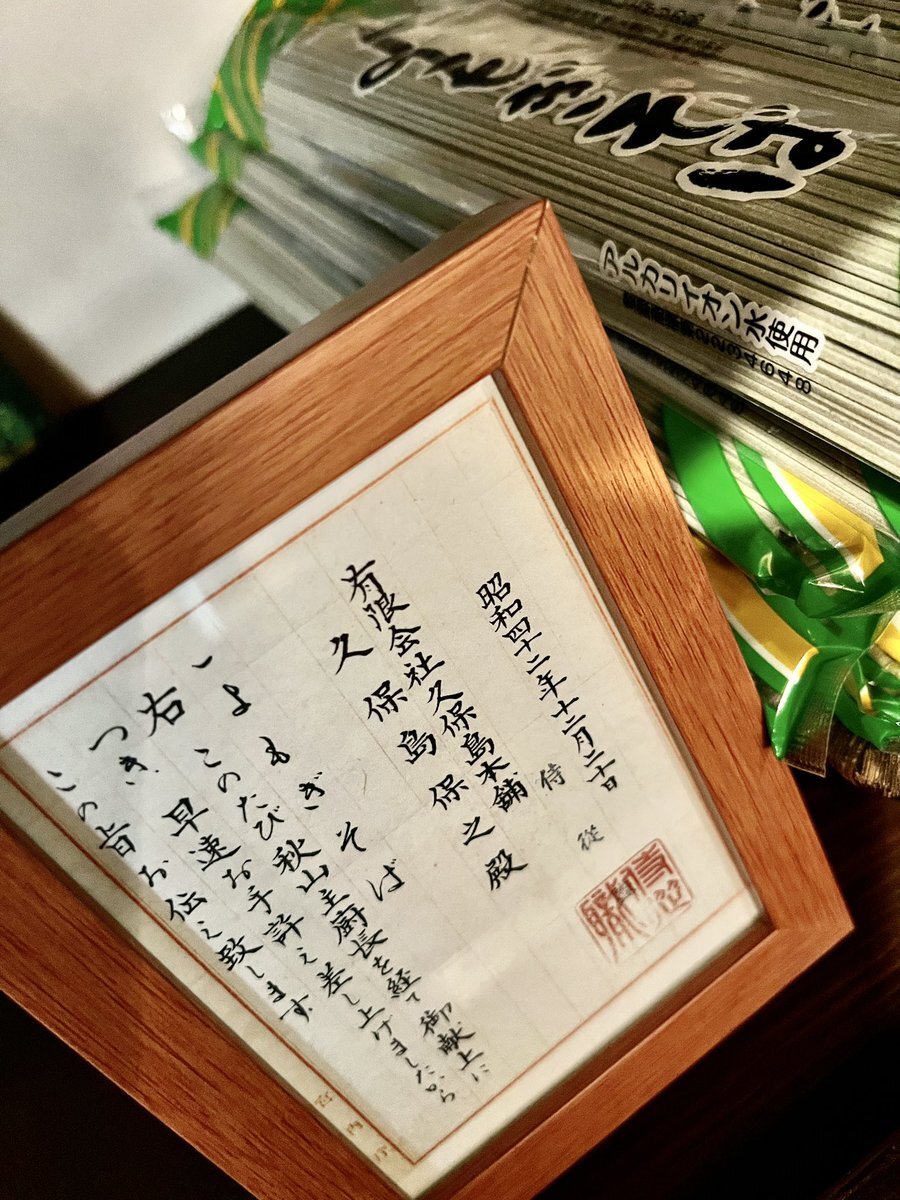 よもぎそば
アルカリイオン水使用
2234648
昭和四十二年十二月二十日
侍従
有限会社久保島本舗
久保島保之殿
一よもぎそば
右このたび秋山主厨長を経て御献上に
つき早速お手許え差し上げましたから
この旨お伝え致します
宮内庁